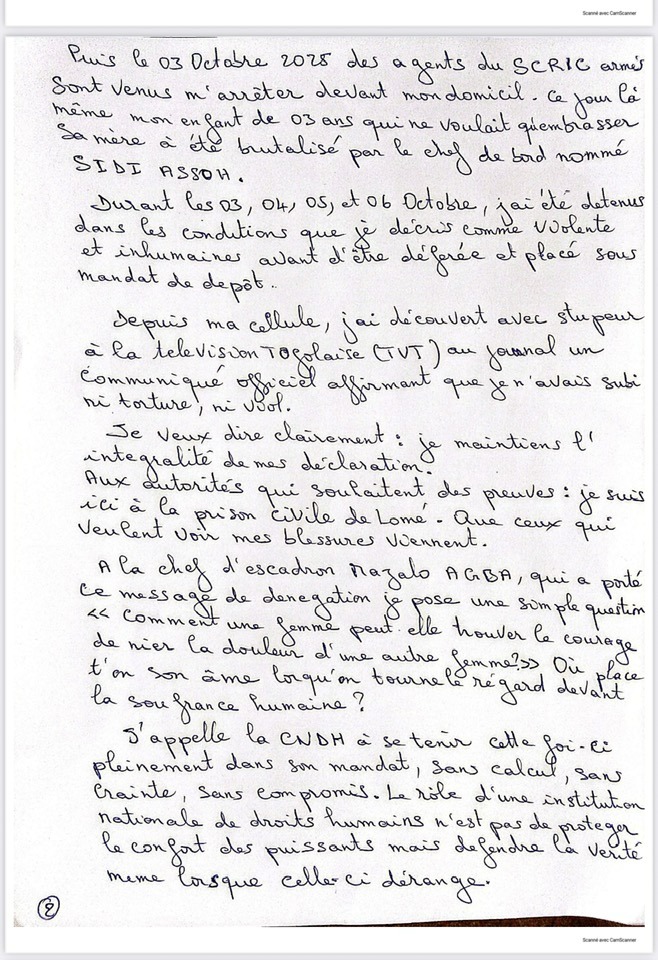 Scanné avec CamScanner
Puis le 03 Octobre 2025 des agents du SCRIC armés
sont venus m'arrêter devant mon domicil. Ce jour là
même mon enfant de 03 ans qui ne voulait qu'embrasser
sa mère à été brutalisé par le chef de bord nommé
SIDI ASSOH.
Durant les 03, 04, 05, et 06 Octobre, j'ai été detenus
dans les conditions que je décris comme violente
et inhumaines avant d'être déferée et placé sous
mandat de depôt.
Depuis ma cellule, j'ai découvert avec stupeur
à la télévision TOgolaise (TVT) au journal un
Communiqué officiel affirmant que je n'avais subi
ni torture, ni viol.
Je veux dire clairement : je maintiens l'
integralité de mes déclaration.
Aux autorités qui souLaitent des preuves : je suis
ici à la prison civile de Lomé. Que ceux qui
veulent voir mes blessures viennent.
A la chef d'escadron Nazalo AGBA, qui a porté
ce message de denegation je pose une simple question
<< Comment une femme peut elle trouver le courage
de nier la douleur d'une autre femme?>> Où place
t'on son âme lorqu'on tourne le régard devant
la soufrance humaine ?
J'appelle la CNDH à se tenir cette foi-ci
pleinement dans son mandat, sans calcul, sans
crainte, sans compromis. Le rôle d'une institution
nationale de droits humains n'est pas de proteger
le confort des puissants mais defendre la verité
meme lorsque celle-ci dérange.
2
Scanné avec CamScanner